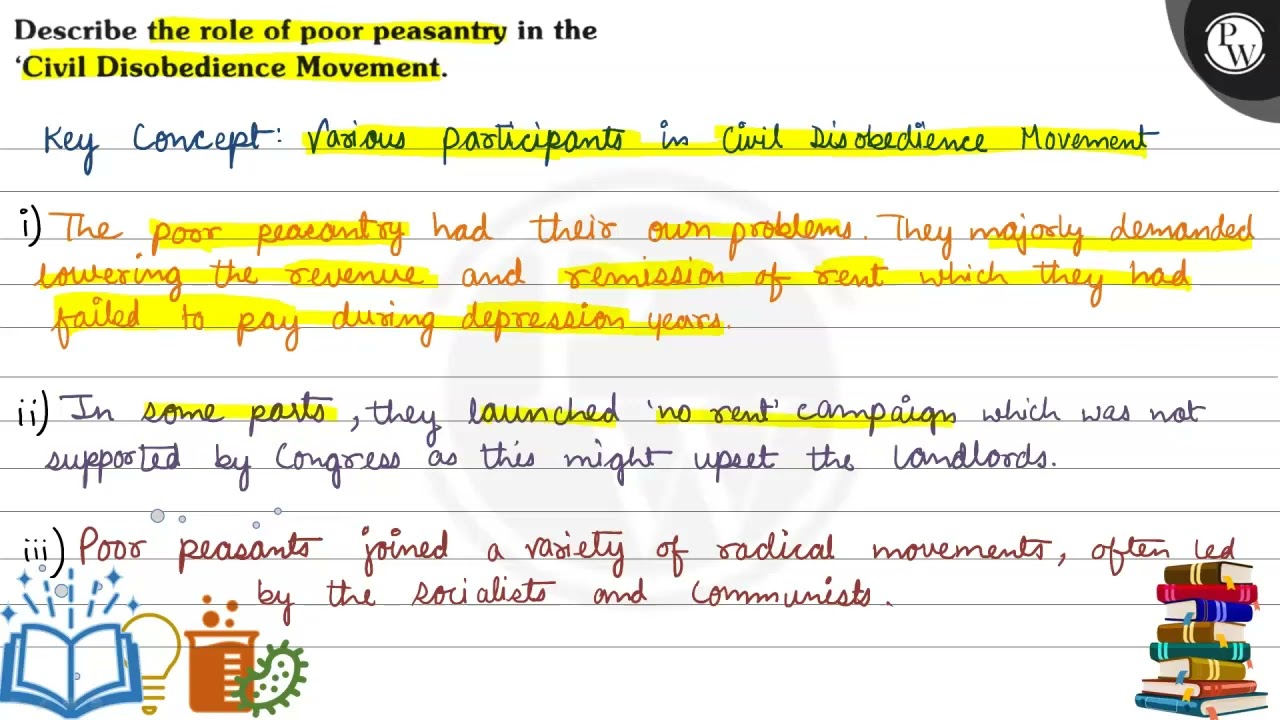 Describe the role of poor peasantry in the
'Civil Disobedience Movement.
PW
Key Concept: Various participants in Civil Disobedience Movement
i) The poor peasantry had their own problems. They majorly demanded
lowering the revenue and remission of rent which they had
failed to pay during depression years.
ii) In some parts, they launched 'no rent' campaign which was not
supported by Congress as this might upset the landlords.
iii) Poor peasants joined a variety of radical movements, often led
by the socialists and communists.